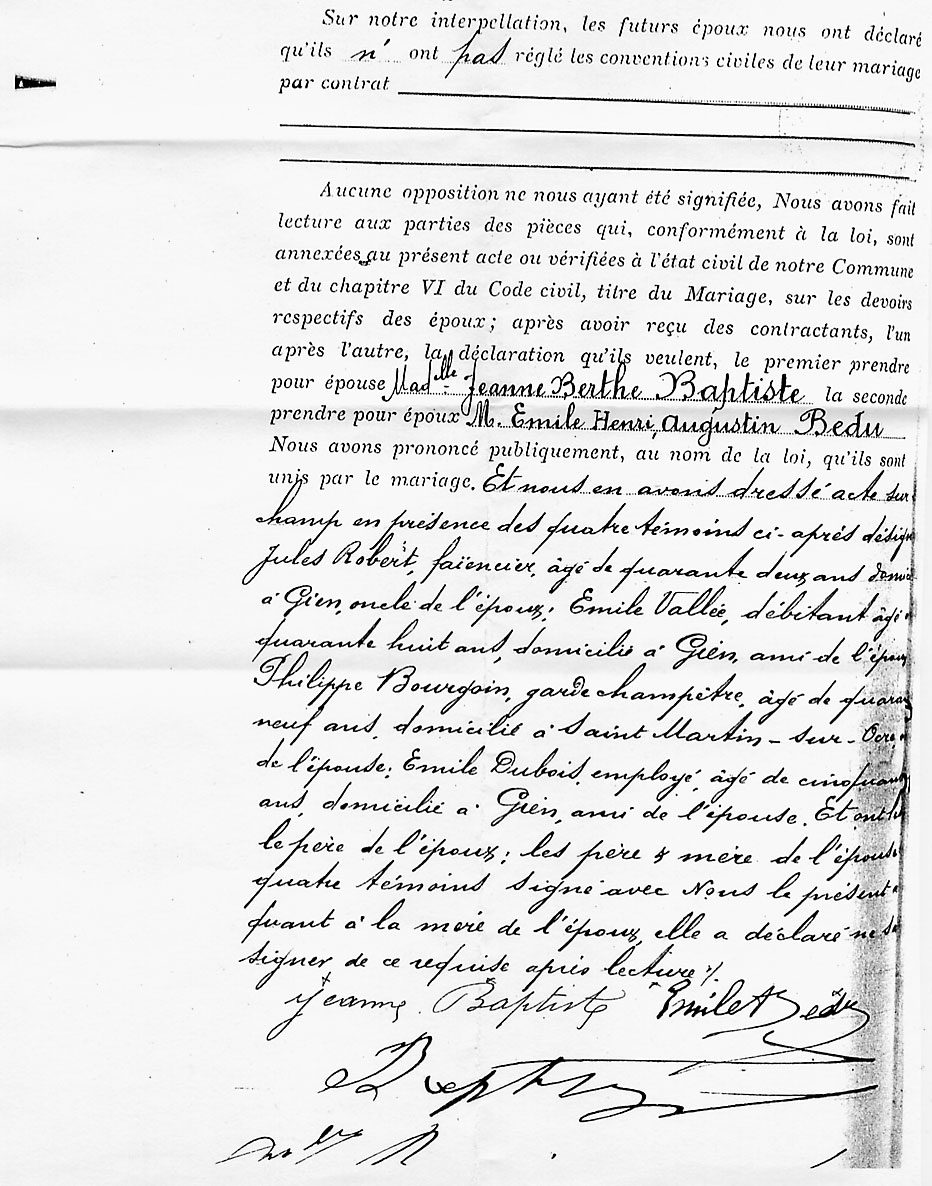 Sur notre interpellation, les futurs époux nous ont déclaré
qu'ils n' ont pas réglé les conventions civiles de leur mariage
par contrat
Aucune opposition ne nous ayant été signifiée, Nous avons fait
lecture aux parties des pièces qui, conformément à la loi, sont
annexées au présent acte ou vérifiées à l'état civil de notre Commune
et du chapitre VI du Code civil, titre du Mariage, sur les devoirs
respectifs des époux; après avoir reçu des contractants, l'un
après l'autre, la déclaration qu'ils veulent, le premier prendre
pour épouse Madelle Jeanne Berthe Baptiste la seconde
prendre pour époux M. Emile Henri, Augustin Bedu
Nous avons prononcé publiquement, au nom de la loi, qu'ils sont
unis par le mariage. Et nous en avons dressé acte sur
champ en présence des quatre témoins ci-après désig
Jules Robert, faïencier, âgé de quarante deux ans domi
à Gien, oncle de l'époux; Emile Vallée, débitant âgé
quarante huit ans, domicilié à Gien, ami de l'époux
Philippe Bourgoin, garde champêtre, âgé de quaran
neuf ans, domicilié à Saint Martin-sur-Ocre,
de l'épouse; Emile Dubois, employé, âgé de cinquan
ans, domicilié à Gien, ami de l'épouse. Et ont
le père de l'époux; les père & mère de l'épouse
quatre témoins signé avec Nous le présent
quant à la mère de l'époux, elle a déclaré ne
signer de ce requise après lecture ./.
Jeanne Baptiste Emile Bedu